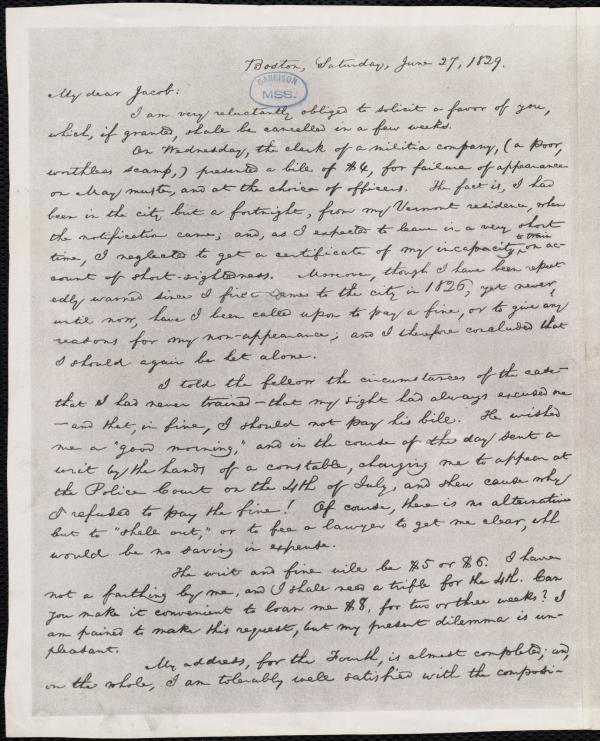 Boston, Saturday, June 27, 1829.
GARRISON
MSS.
My dear Jacob:
I am very reluctantly obliged to solicit a favor of you,
which, if granted, shall be cancelled in a few weeks.
On Wednesday, the clerk of a militia company, (a poor,
worthless scamp,) presented a bill of $4, for failure of appearance
on May muster, and at the choice of officers. The fact is, I had
been in the city but a fortnight, from my Vermont residence, when
the notification came; and, as I expected to leave in a very short
time, I neglected to get a certificate of my incapacity to train on ac-
count of short-sightedness. Moreover, though I have been repeat-
edly warned since I first came to the city in 1826, yet never,
until now, have I been called upon to pay a fine, or to give any
reasons for my non-appearance; and I therefore concluded that
I should again be let alone.
I told the fellow the circumstances of the case—
that I had never trained—that my sight had always excused me
—and that, in fine, I should not pay his bill. He wished
me a "good morning," and in the course of the day sent a
writ by the hands of a constable, charging me to appear at
the Police Court on the 4th of July, and shew cause why
I refused to pay the fine! Of course, there is no alternative
but to "shell out," or to fee a lawyer to get me clear, whh
would be no saving in expense.
The writ and fine will be $5 or $6. I have
not a farthing by me, and I shall need a trifle for the 4th. Can
you make it convenient to loan me $8, for two or three weeks? I
am pained to make this request, but my present dilemma is un-
pleasant.
My address, for the Fourth, is almost completed; and,
on the whole, I am tolerably well satisfied with the composi-